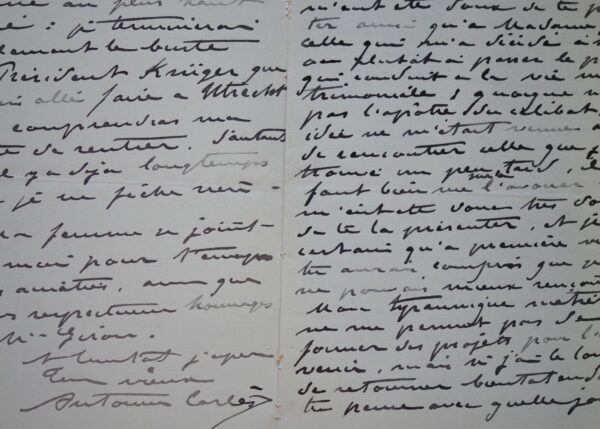 au plus haut
: je terminerai
le buste
Président Krüger que
allé faire à Utrecht
comprendras ma
de rentrer. d'autant
il y a déjà longtemps
je ne
femme se joint
moi pour t'envoyer
amitiés, avec que
respectueux hommages
A bientôt j'espère
Ton vieux
Antonin Carlès
m'eut été doux de te
aussi qu'à Madame
celle qui m'a décidé à
ou plutôt à passer le
qui conduit à la vie ma
trimoniale ; quoique
pas l'apôtre du célibat,
idée ne m'était venue
de rencontrer celle que j'
trouvé un peu tard,
faut bien me l'avouer
m'eut été donc très
de te la présenter, et je
certain qu'à première
tu aurais compris que je
ne pouvais mieux rencon
Mon tyrannique métier
ne me permet pas de
former des projets pour l'a
venir, mais si j'ai le
de retourner bientôt
tu pense avec quelle